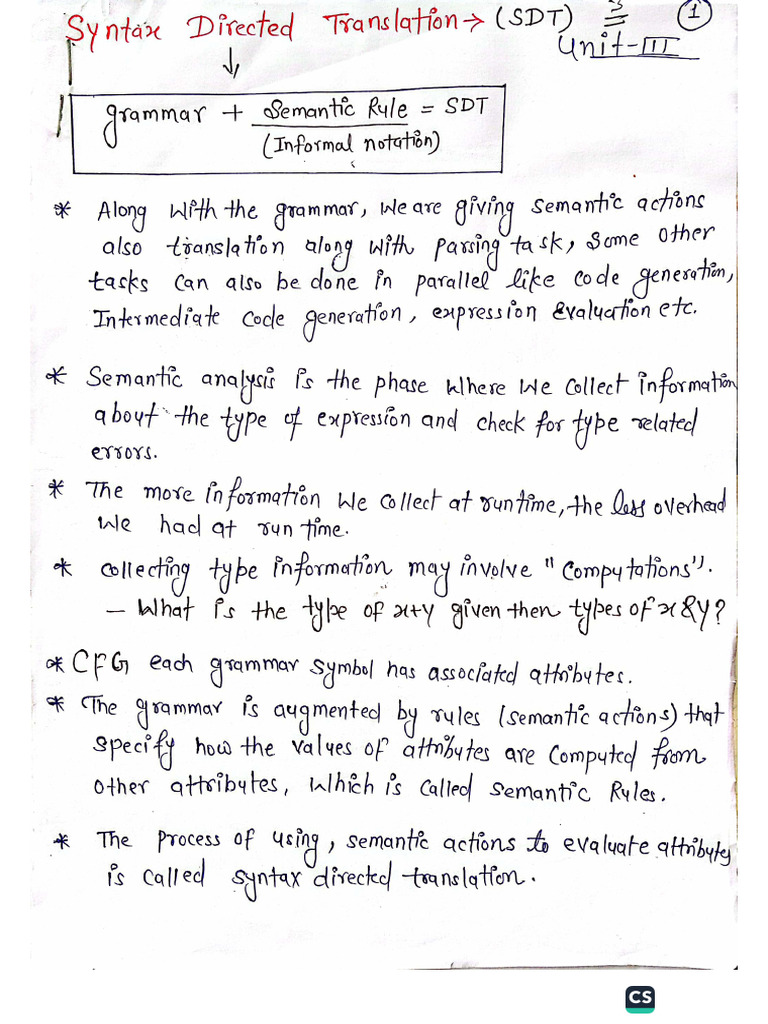 Syntax Directed Translation → (SDT)
①
Unit-III
grammar + Semantic Rule = SDT
(Informal notation)
* Along with the grammar, we are giving semantic actions
also translation along with parsing task, some other
tasks can also be done in parallel like code generation,
Intermediate code generation, expression evaluation etc.
* Semantic analysis is the phase where we collect information
about the type of expression and check for type related
errors.
* The more information we collect at runtime, the less overhead
we had at run time.
* Collecting type information may involve "Computations".
- What is the type of x+y given then types of x &y?
* CFG each grammar symbol has associated attributes.
* The grammar is augmented by rules (semantic actions) that
specify how the values of attributes are computed from
other attributes, which is called semantic Rules.
* The process of using, semantic actions to evaluate attributes
is called syntax directed translation.
CS